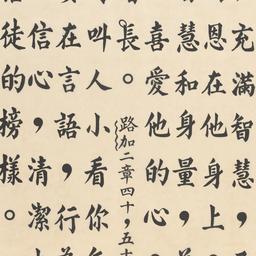 充滿智慧，
恩在他身上，
慧和身量，
喜愛他的心，
長。路加二章四十，五十
叫人小看你
在言語，行
信心，清潔
徒的榜樣。